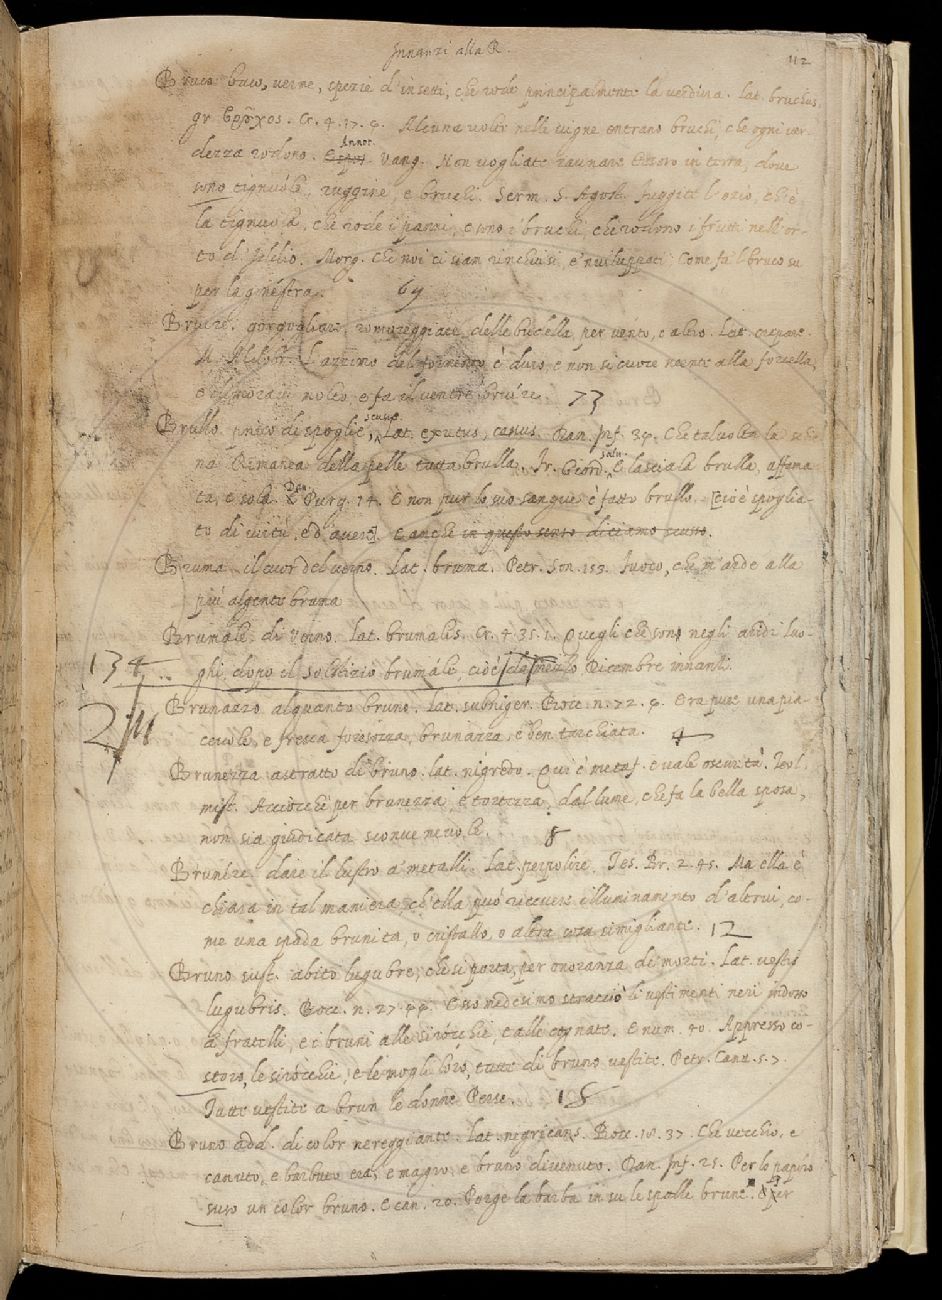 Innanzi alla R.
112
Bruco. baco, verme, spezie d'insetti, che rode principalmente la verdura. Lat. bruchus,
gr. βροῦχος. Cr. 4. 17. 9. Alcuna volta nelle vigne entrano bruchi, che ogni ver-
dezza rodono. Annot. Vang. Non vogliate raunare tesoro in terra, dove
sono tignuole, ruggine, e bruchi. Serm. S. Agost. Fuggite l'ozio, ch'è
la tignuola, che rode i panni, e sono i bruchi, che rodono i frutti nell'or-
to di Iddio. Morg. Che noi ci siam rinchiusi, e 'nviluppati Come fa 'l bruco su
per la ginestra. 69
Bruire. gorgogliare, romoreggiare delle budella, per vento, o altro. Lat. crepare.
M. Aldobr. L'azzimo del formento è duro, e non si cuoce neente alla forcella,
e dimora molto e fa il ventre bruire 73
Brullo. privo di spoglie, scusso, Lat. exutus, Dan. Inf. 34. Che talvolta la schie-
na Rimanea della pelle tutta brulla. Fr. Giord. Salu. E lasciala brulla, affama-
ta, e sola. Dan. Purg. 14. E non pur lo suo sangue è fatto brullo. [cioè spoglia-
to di virtù, ed avere]. E anche in questo senso diciamo scusso.
Bruma. il cuor del verno. Lat. bruma. Petr. Son. 153. Fuoco, che m'arde alla
più algente bruma
Brumale. di Verno. Lat. brumalis. Cr. 4. 35. 1. Quegli che sono negli aridi luo-
134
ghi, dopo il solstizio brumale, cioè da mezzo Dicembre innanti.
Brunazzo. alquanto bruno. Lat. subniger. Bocc. n. 72. 4. Era pure una pia-
cevole, e fresca foresozza, brunazza, e ben tarchiata. 4
Brunezza. astratto di bruno. lat. nigredo. Qui è metaf. e vale oscurità. Teol.
mist. Acciocchè per brunezza, e tortezza, dal lume, che fa la bella sposa,
non sia giudicata sconvenevole. 8
Brunire. dare il lustro a' metalli. Lat. perpolire. Tes. Br. 2. 45. Ma ella è
chiara in tal maniera, ch'ella può ricevere illuminamento d'altrui, co-
me una spada brunita, o cristallo, o altra cosa simigliante. 12
Bruno sust. abito lugubre, che si porta, per onoranza di morti. Lat. vestis
lugubris. Bocc. n. 27. 44. Esso medesimo stracciò li vestimenti neri indosso
a' fratelli, e i bruni alle sirocchie, e alle cognate. E num. 40. Appresso co-
storo, le sirocchie, e le mogli loro, tutte di bruno vestite. Petr. Canz. 5. 7.
Tutte vestite a brun le donne Perse. 18
Bruno add. di color nereggiante. Lat. nigricans. Bocc. 18. 37. Che vecchio, e
canuto, e barbuto era, e magro, e bruno divenuto. Dan. Inf. 25. Per lo papiro
suso un color bruno. E can. 20. Porge la barba in su le spalle brune. E per